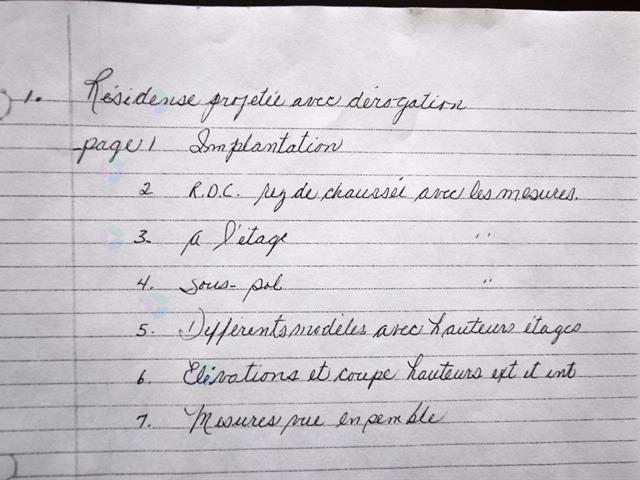 1. Résidense projetée avec dérogation
page 1 Implantation
2 R.D.C. rez de chaussée avec les mesures.
3. A l'étage "
4. Sous-sol "
5. Différents modèles avec hauteurs étages
6. Elévations et coupe hauteurs ext et int
7. Mesures vue ensemble